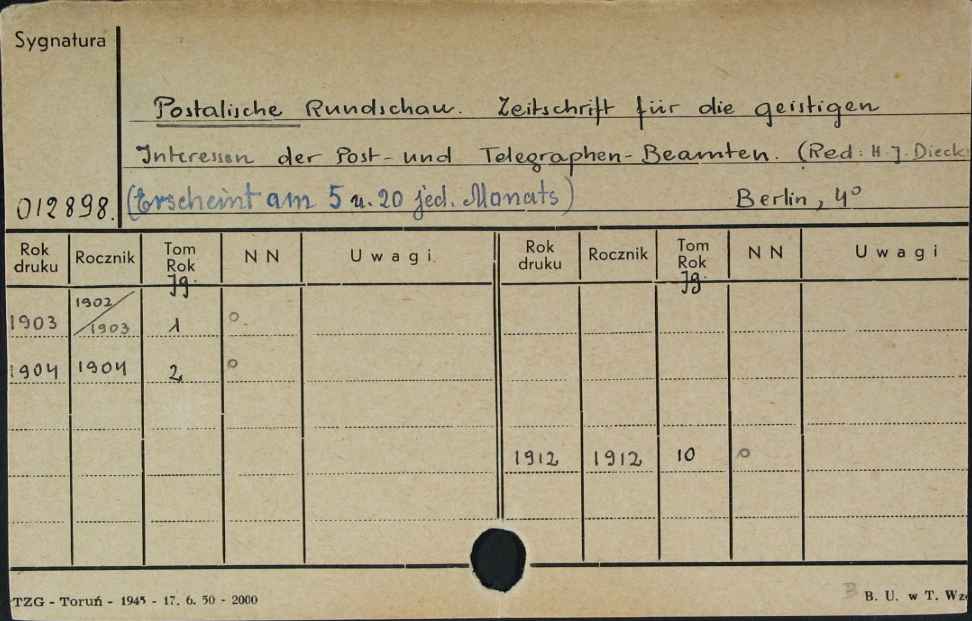 Sygnatura
Postalische Rundschau. Zeitschrift für die geistigen
Interessen der Post- und Telegraphen-Beamten. (Red: H. J.
012898. (Erscheint am 5 u. 20 jed. Monats) Berlin, 4°
Rok druku Rocznik Tom Rok Jg. NN Uwagi Rok druku Rocznik Tom Rok Jg. NN Uwagi
1903 1902/1903 1 o
1904 1904 2 o
1912 1912 10 o
TZG - Toruń - 1945 - 17. 6. 50 - 2000 B B. U. w T.